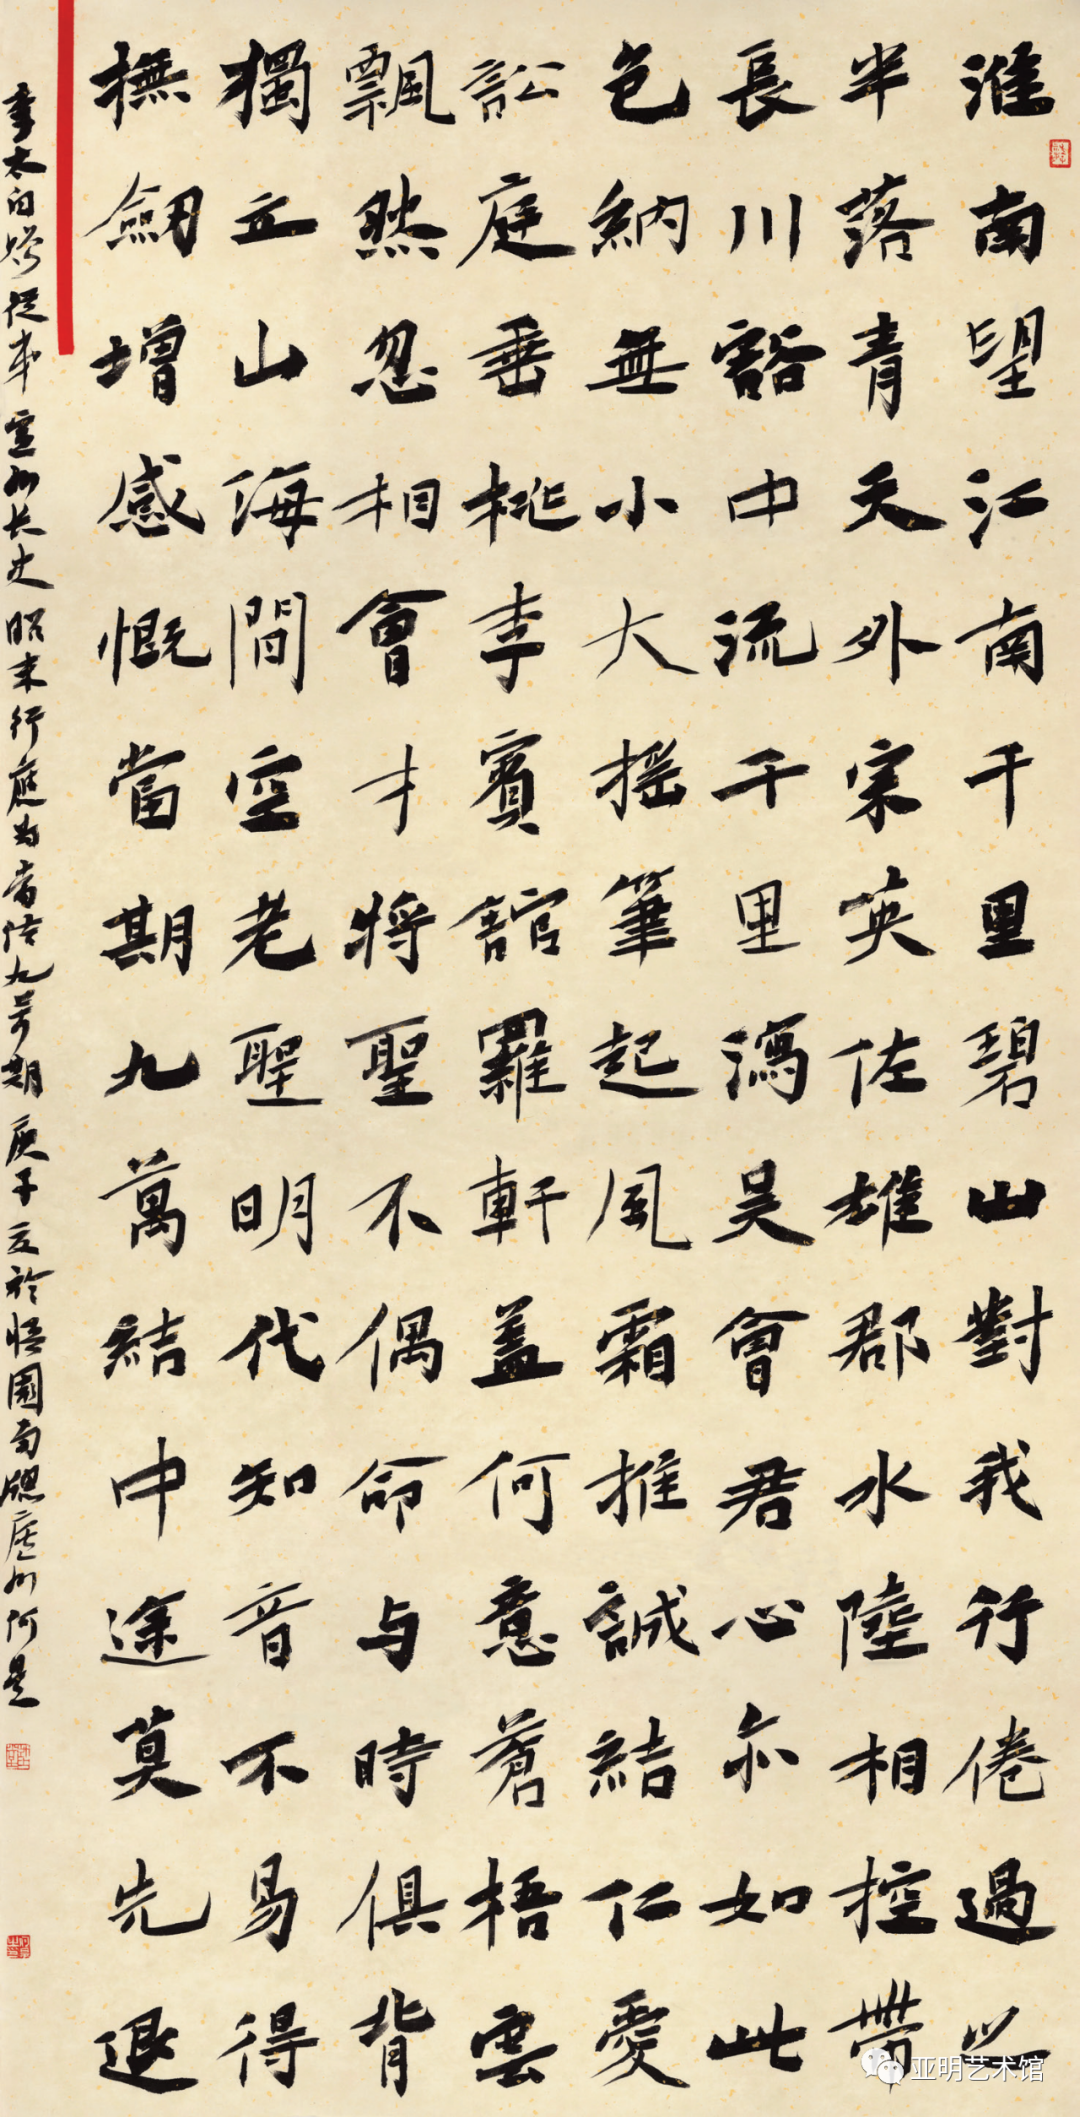 淮南望江南千里碧山對我行倦過之
半落青天外宗英佐雄郡水陸相控帶
長川豁中流千里瀉吳會君心亦如此
包納無小大搖筆起風霜推誠結仁愛
訟庭垂桃李賓館羅軒蓋何意蒼梧雲
飄然忽相會才將聖不偶命与時俱背
獨立山海間空老聖明代知音不易得
撫劒增感慨當期九萬結中途莫先退
書太白贈從弟宣州长史昭末行應为當结九萬期庚子夏於悟園南牕廬州阿是
亚明艺术馆